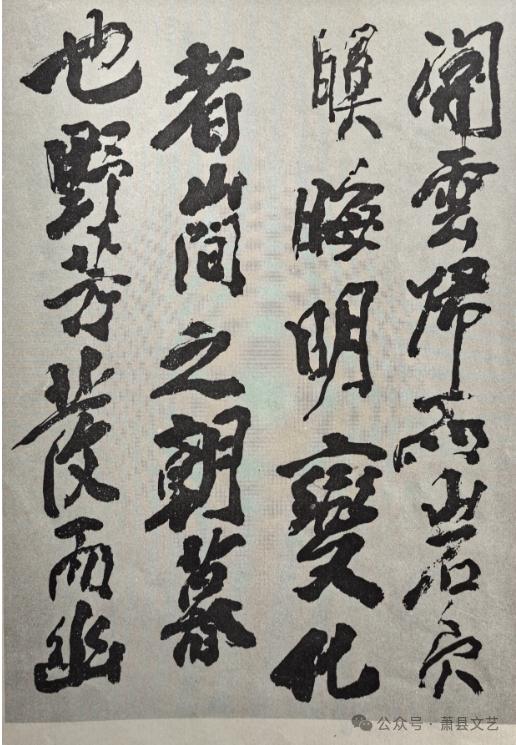 開雲歸而岩穴
暝晦明變化
者山間之朝暮
也野芳發而幽
公众号·萧县文艺